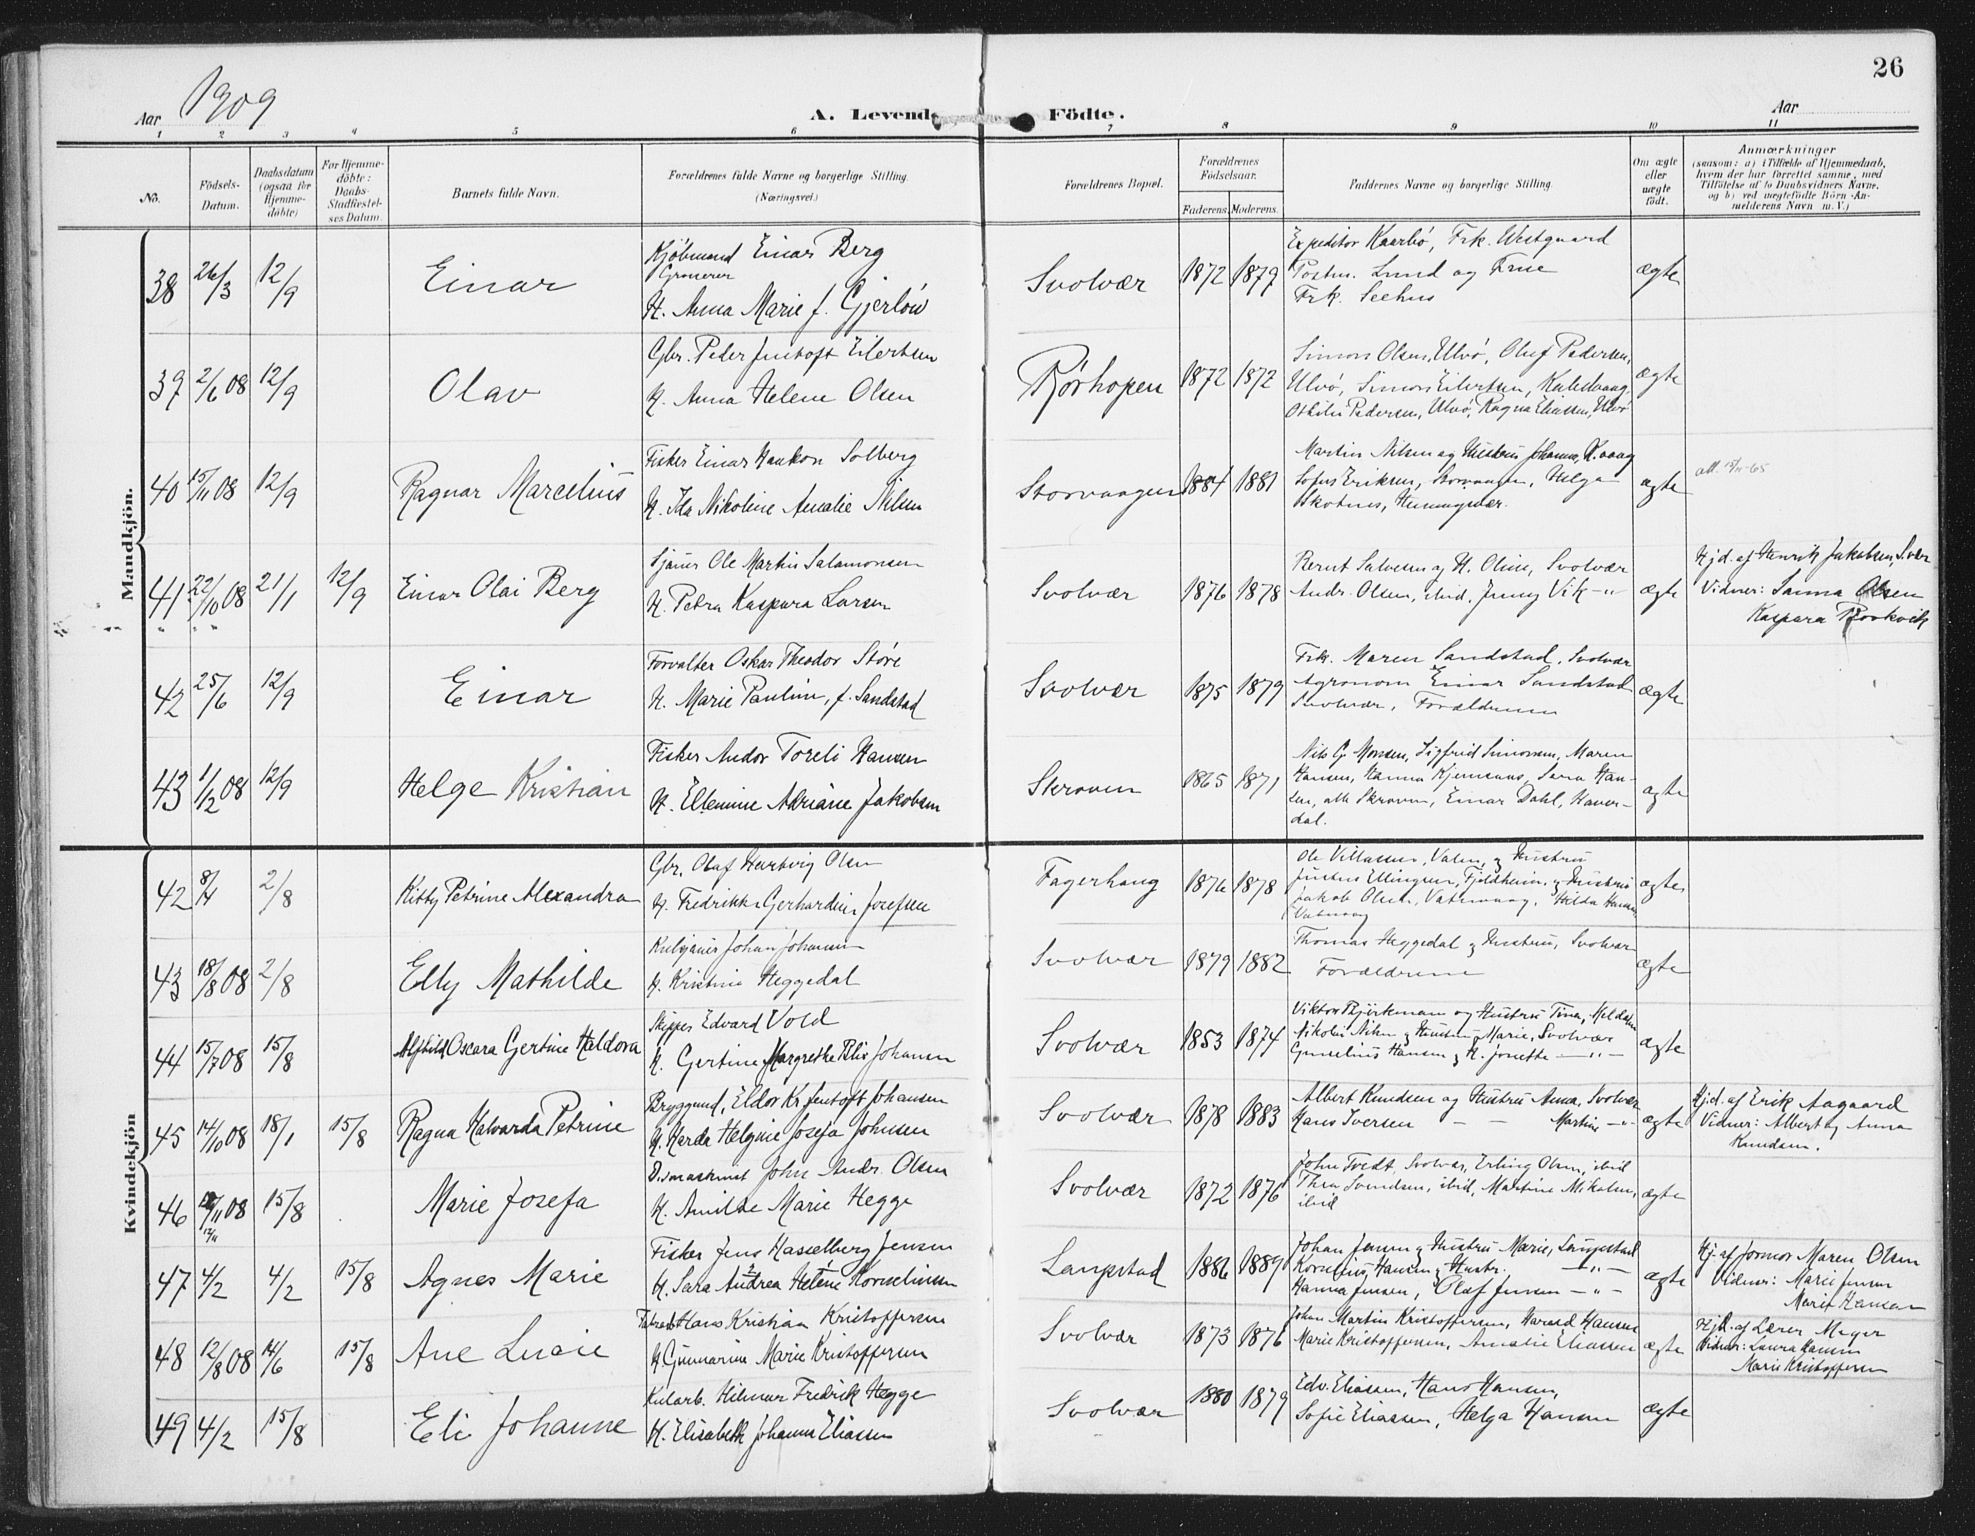 26
Aar 1909
A. Levende Födte.
Aar
1 2 3 4 5 6 7 8 9 10 11
No.
Födsels-Datum.
Daabsdatum (ogsaa for Hjemme-döbte)
For Hjemme-döbte: Daabs-Stadfæstel-ses Datum.
Barnets fulde Navn.
Forældrenes fulde Navne og borgerlige Stilling (Næringsvei.)
Forældrenes Bopæl.
Forældrenes Födselsaar.
Faderens. Moderens.
Faddernes Navne og borgerlige Stilling.
Om ægte eller uægte födt.
Anmærkninger
(saasom: a) i Tilfælde af Hjemmedaab, hvem der har forrettet samme, med Tilföielse af to Daabsvidners Navne, og b) ved uægtefödte Börn An-melderens Navn m. V.)
Mandkjön.
38 26/3 12/9 Einar
Kjöbmand Einar Berg
H. Anna Marie f. Gjerlöw
Svolvær 1872 1879
Expeditor Kaarbö, Frk. Westgaard
Postm. Lund og Frue
Frk. Seehus
ægte
39 2/6 08 12/9 Olav
Gbr. Peder Jentoft Eilertsen
H. Anna Helene Olsen
Rörhopen 1872 1872
Simon Olsen, Ulvö, Oluf Pedersen,
Ulvö, Simon Eilertsen, Kalvaag,
Othilie Pedersen, Ulvö, Ragna Eliassen, Ulvö
ægte
40 15/11 08 12/9 Ragnar Marcelius
Fisker Einar Haakon Solberg
H. Ida Nikoline Amalie Nilsen
Storvaagen 1884 1881
Martin Nilsen og Hustru Johanna, K.vaag
Sofus Eriksen, Storvaagen, Helga
Skotnes, Henningsvær.
ægte
41 22/10 08 21/1 12/9 Einar Olai Berg
Sjauer Ole Martin Salamonsen
H. Petra Kaspara Larsen
Svolvær 1876 1878
Bernt Salvesen og H. Oline, Svolvær
Andr. Olsen, ibid, Jenny Vik -"-
ægte
Hjd. af Henrik Jakobsen, Svær
Vidner: Sanna Olsen
Kaspara Rövikvik
42 25/6 12/9 Einar
Forvalter Oskar Theodor Störe
H. Marie Pauline, f. Sandstad
Svolvær 1875 1879
Frk. Maren Sandstad, Svolvær
Agronom Einar Sandstad
Svolvær, Forældrene
ægte
43 1/2 08 12/9 Helge Kristian
Fisker Andor Toreli Hansen
H. Ellemine Adriane Jakobsen
Skroven 1865 1871
Nils G. Monsen, Sigfrid Simonsen, Maren
Hansen, Hanna Kjemsaas, Sara Han-
sen, alle Skroven, Einar Dahl, Haver-
dal.
ægte
Kvindekjön
42 8/4 2/8 Kitty Petrine Alexandra
Gbr. Olaf Hartvig Olsen
H. Fredrikke Gerhardine Josefsen
Fagerhaug 1876 1878
Ole Villassen, Valen, og Hustru
Justus Ellingsen, Fjeldheim, og Hustru
Jakob Olsen, Vatervaag, Hilda Hansen
Vatervaag
ægte
43 18/8 08 2/8 Elly Mathilde
Kulsjauer Johan Johansen
H. Kristine Heggedal
Svolvær 1879 1882
Thomas Heggedal og Hustru, Svolvær
Forældrene
ægte
44 15/7 08 15/8 Alfhild Oscara Gertine Haldora
Skipper Edvard Vold
H. Gertine Margrethe Blix Johansen
Svolvær 1853 1874
Viktor Björkmann og Hustru Tina, Meldalen
Nikolai Nilsen og Hustru Marie, Svolvær
Gunelius Hansen og H. Jonette -"-
ægte
45 14/10 08 18/1 15/8 Ragna Halvarda Petrine
Bryggmd. Eldor Kr. Jentoft Johansen
H. Harda Helgine Josefa Johnsen
Svolvær 1878 1883
Albert Knudsen og Hustru Anna, Svolvær
Hans Iversen - - Martine -"-
ægte
Hjd. af Erik Aagaard
Vidner: Albert og Anna
Knudsen.
46 11 08 15/8 Marie Josefa
D.maskinist John Andr. Olsen
H. Amilde Marie Hegge
Svolvær 1872 1876
John Tvedt, Svolvær, Erling Olsen, ibid
Thea Svendsen, ibid, Martine Mikalsen,
ibid
ægte
47 4/2 4/2 15/8 Agnes Marie
Fisker Jens Hasselberg Jensen
H. Sara Andrea Helene Kornelius­sen
Laupstad 1886 1889
Johan Jensen og Hustru Marie, Laupstad
Kornelius Hansen og Hustr. -"-
Hanna Jensen, Olaf Jensen -"-
ægte
Hj. af Jormor Maren Olsen
Vidner: Marie Jensen
Marit Hansen
48 12/8 08 14/6 15/8 Ane Lucie
Hans Kristian Kristoffersen
H. Gunnarine Marie Kristoffersen
Svolvær 1873 1876
Johan Martin Kristoffersen, Harald Hansen
Marie Kristoffersen, Amalie Eliassen
ægte
Hjd. af Lærer Meyer
Vidner: Laura Hansen
Marie Kristoffersen
49 4/2 15/8 Eli Johanne
Kularb. Hilmar Fredrik Hegge
H. Elisabeth Johanne Eliassen
Svolvær 1880 1879
Edv. Eliassen, Hans Hansen,
Sofie Eliassen, Helga Hansen
ægte